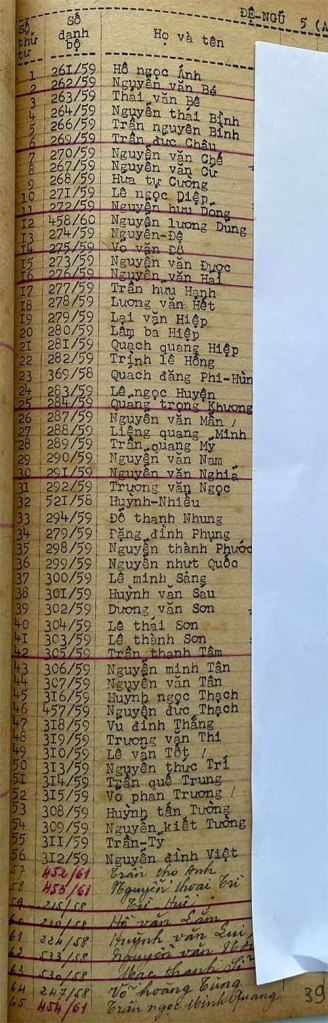 ĐỆ-NGŨ 5 (A
Số thứ tự
Số danh bộ
Họ và tên
1 261/59 Hồ ngọc Ánh
2 262/59 Nguyễn văn Bé
3 263/59 Thái văn Bê
4 264/59 Nguyễn thái Bình
5 266/59 Trần nguyên Bình
6 269/59 Trần đức Châu
7 270/59 Nguyễn văn Chế
8 267/59 Nguyễn văn Cư
9 268/59 Hứa tự Cường
10 271/59 Lê ngọc Diệp
11 272/59 Nguyễn hữu Dõng
12 458/60 Nguyễn lương Dung
13 274/59 Nguyễn-Đệ
14 275/59 Võ văn Đô
15 273/59 Nguyễn văn Được
16 276/59 Nguyễn văn Hai
17 277/59 Trần hữu Hạnh
18 278/59 Lương văn Hết
19 279/59 Lại văn Hiệp
20 280/59 Lâm ba Hiệp
21 281/59 Quách quang Hiệp
22 282/59 Trịnh lê Hồng
23 369/58 Quách đăng Phi-Hùn
24 283/59 Lê ngọc Huyện
25 284/59 Quang trọng Khương
26 287/59 Nguyễn văn Mẫn
27 288/59 Liêng quang Minh
28 289/59 Trần quang Mỹ
29 290/59 Nguyễn văn Nam
30 291/59 Nguyễn văn Nghĩa
31 292/59 Trương văn Ngọc
32 521/58 Huỳnh-Nhiều
33 294/59 Đỗ thanh Nhung
34 279/59 Đặng đình Phụng
35 298/59 Nguyễn thành Phước
36 299/59 Nguyễn nhựt Quốc
37 300/59 Lê minh Sáng
38 301/59 Huỳnh văn Sáu
39 302/59 Dương văn Sơn
40 304/59 Lê thái Sơn
41 303/59 Lê thành Sơn
42 305/59 Trần thanh Tâm
43 306/59 Nguyễn minh Tân
44 307/59 Nguyễn văn Tân
45 316/59 Huỳnh ngọc Thạch
46 457/59 Nguyễn đức Thạch
47 318/59 Vũ đình Thắng
48 319/59 Trương văn Thi
49 310/59 Lê văn Tết
50 313/59 Nguyễn thức Trí
51 314/59 Trần quế Trung
52 315/59 Võ phan Trương
53 308/59 Huỳnh tấn Tưởng
54 309/59 Nguyễn kiết Tường
55 311/59 Trần-Ty
56 312/59 Nguyễn đình Việt
57 452/61 Trần thọ Anh
58 453/61 Nguyễn thoại Trí
59 215/58
60 210/58 Hồ văn Lắm
61 224/58 Huỳnh văn Lui
62 533/58 Nguyễn văn
63 530/58 Mạc thanh
64 247/58 Võ hoàng Tùng
65 454/61 Trần ngọc Minh Quang
39